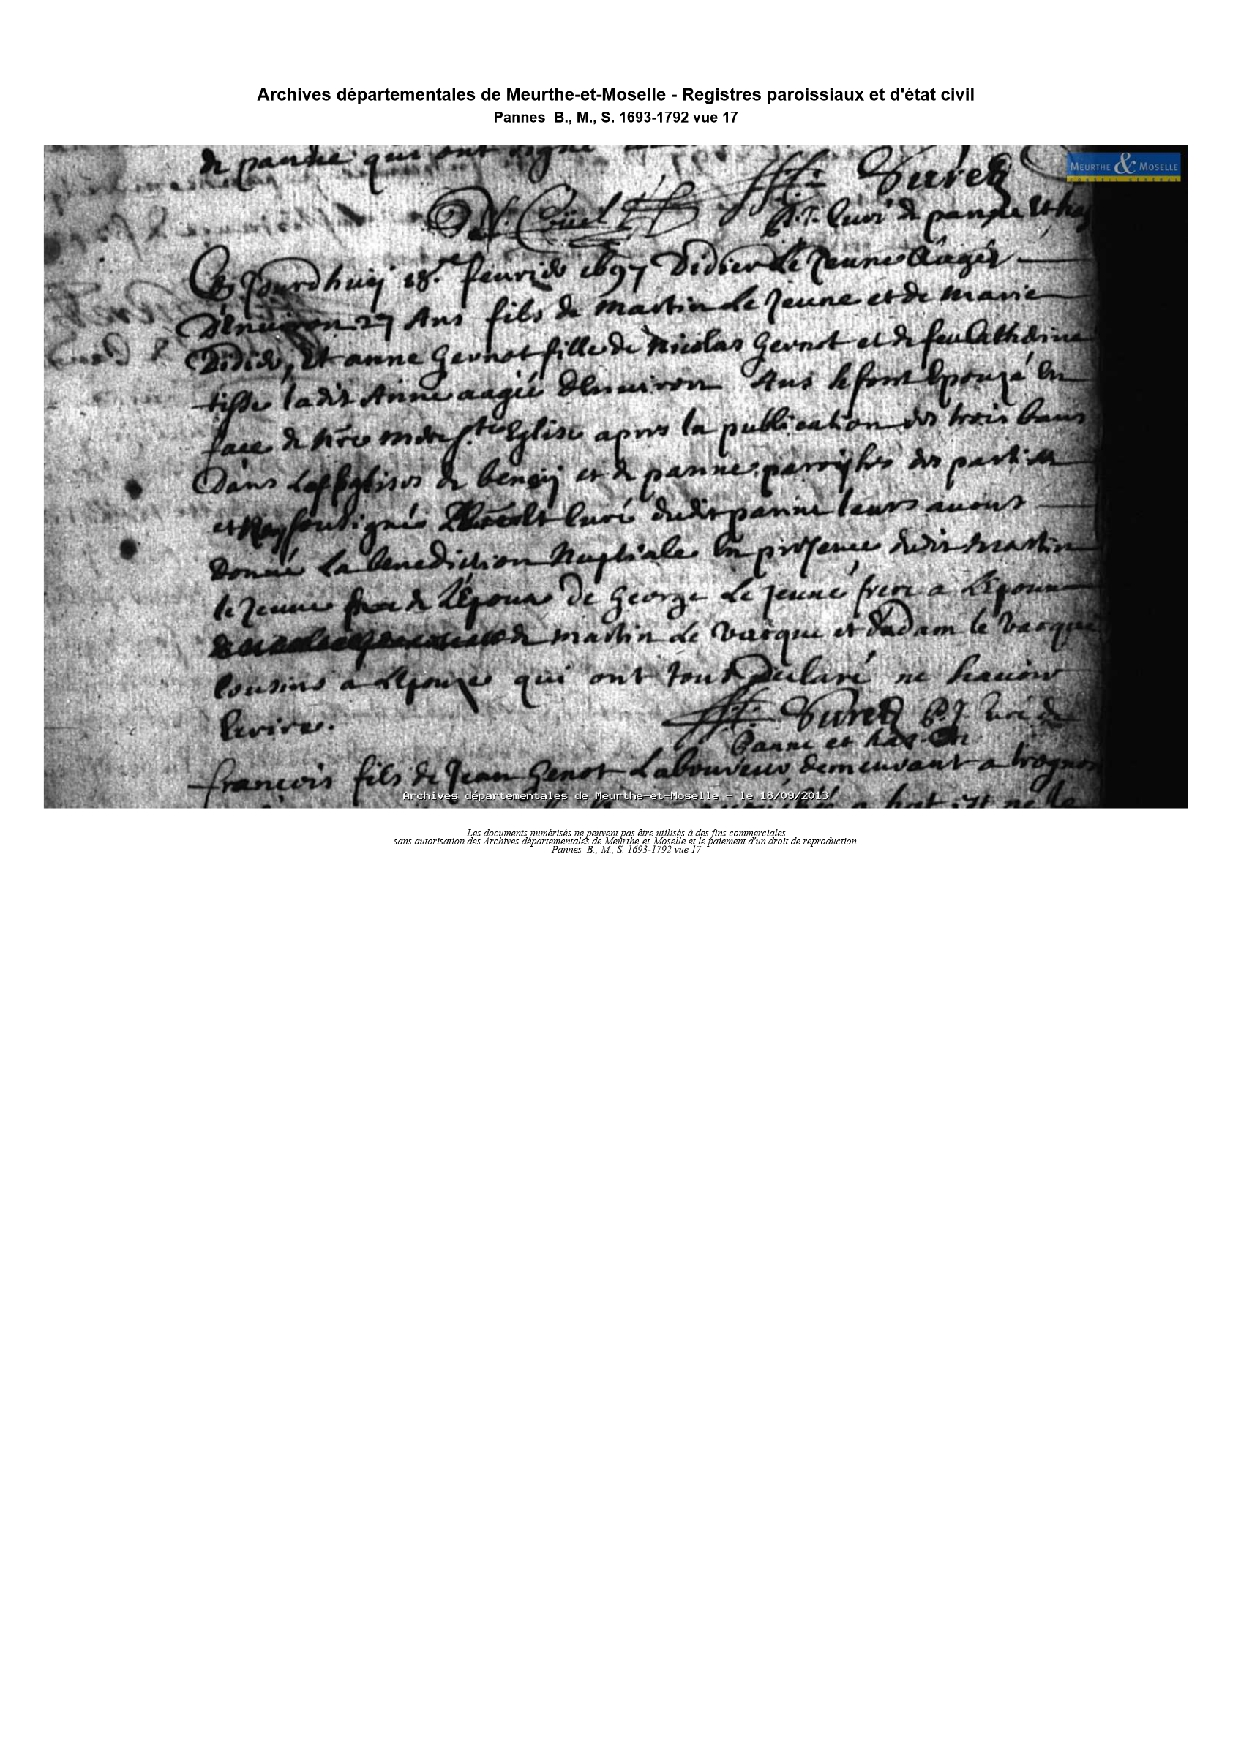 Archives départementales de Meurthe-et-Moselle - Registres paroissiaux et d'état civil
Pannes B., M., S. 1693-1792 vue 17
MEURTHE & MOSELLE
de panne qui ont signé
Curé de panne et
Ce jourdhuij 18.e feurier 1697 Didier Le Jeune aagé
Denuiron 27 Ans fils de Martin Le Jeune et de Marie
Didier, Et anne Gernot fille de Nicolas Gernot et de feu Catherine
ladit Anne aagée Denuiron Ans se sont Epouzé En
face de nře mere ste Eglise apres la publication des trois bans
Dans les Eglises de benoij et de panne paroisses des parties
et Moy soussigné Curé dudit panne leurs auons
Donné La benediction Nuptiale En presence dudit Martin
le Jeune de L'Epoux De George Le Jeune frere a L'Epoux
de martin Le Vacque et dadam le Vacque
Cousins a L'Epouze qui ont tous declaré ne scauoir
Ecrire.
Curé de
Panne et
francois fils de Jean Genot Laboureur demeurant a trognon
Archives départementales de Meurthe-et-Moselle - le 18/09/2013
Les documents numérisés ne peuvent pas être utilisés à des fins commerciales
sans autorisation des Archives départementales de Meurthe et Moselle et le paiement d'un droit de reproduction
Pannes B., M., S. 1693-1792 vue 17